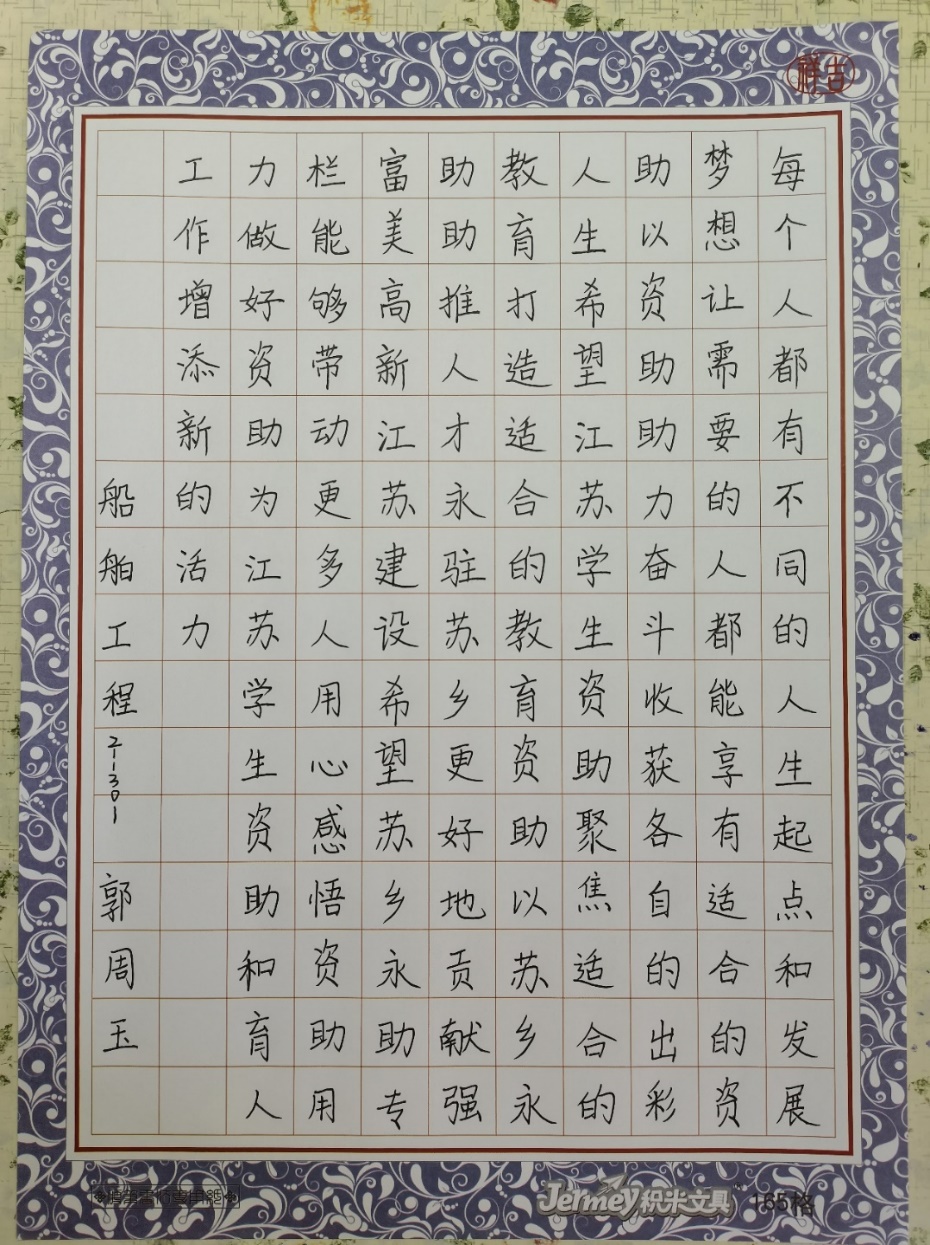 每个人都有不同的人生起点和发展
梦想让需要的人都能享有适合的资
助以资助助力奋斗收获各自的出彩
人生希望江苏学生资助聚焦适合的
教育打造适合的教育资助以苏乡永
助助推人才永驻苏乡更好地贡献强
富美高新江苏建设希望苏乡永助专
栏能够带动更多人用心感悟资助用
力做好资助为江苏学生资助和育人
工作增添新的活力
船舶工程2-1301
郭周玉
吉祥
Jermey积米文具
165格